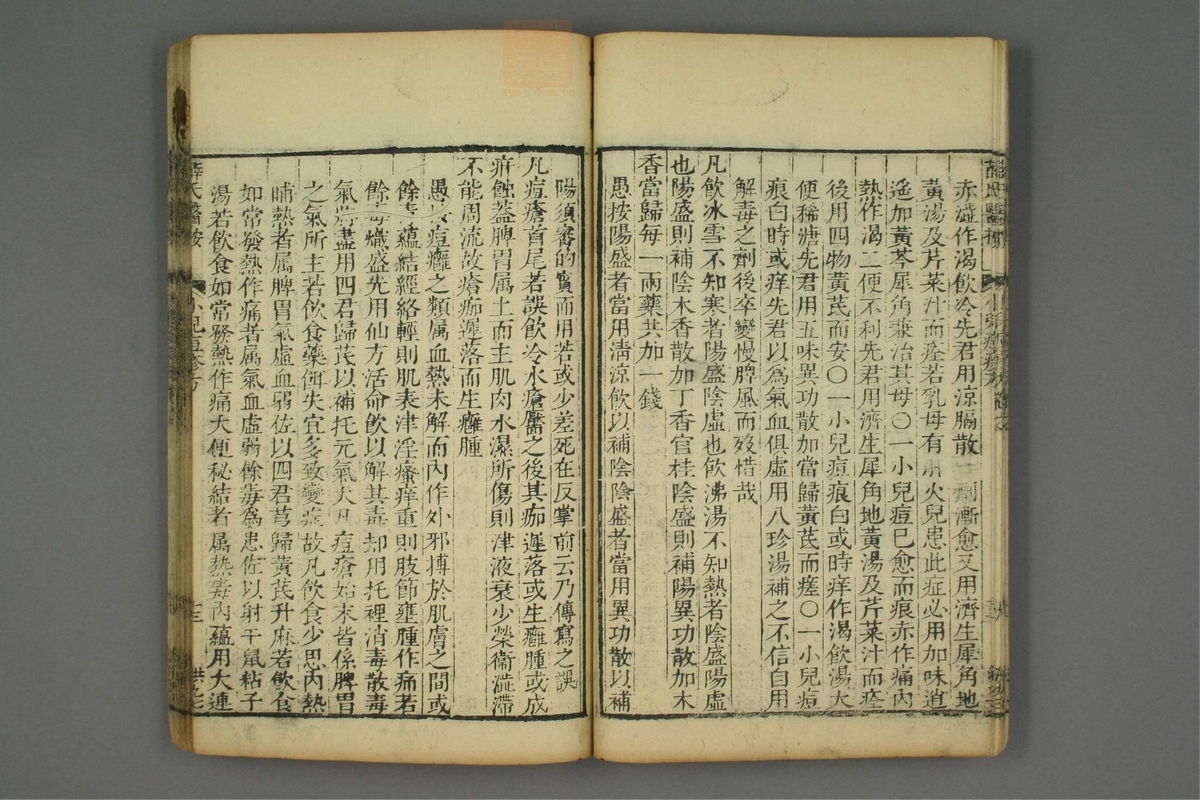 赤澁作渴飲冷先君用涼膈散一劑漸愈又用濟生犀角地
黃湯及芹菜汁而痊若乳母有肝火兒患此症必用加味逍
遙加黃芩犀角兼治其母〇一小兒痘已愈而痕赤作痛內
熱作渴二便不利先君用濟生犀角地黃湯及芹菜汁而痊
後用四物黃芪而安〇一小兒痘痕白或時痒作渴飲湯大
便稀溏先君用五味異功散加當歸黃芪而瘥〇一小兒痘
痕白時或痒先君以爲氣血俱虛用八珍湯補之不信自用
解毒之劑後卒變慢脾風而歿惜哉
凡飲冰雪不知寒者陽盛陰虛也飲沸湯不知熱者陰盛陽虛
也陽盛則補陰木香散加丁香官桂陰盛則補陽異功散加木
香當歸每一兩藥共加一錢
愚按陽盛者當用清涼飲以補陰陰盛者當用異功散以補
陽須審的實而用若或少差死在反掌前云乃傳寫之誤
凡痘瘡首尾若誤飲冷水瘡靨之後其痂遲落或生癰腫或成
疳蝕蓋脾胃属土而主肌肉水濕所傷則津液衰少榮衞澁滯
不能周流故瘡痂遲落而生癰腫
愚按痘癰之類属血熱未解而內作外邪搏於肌膚之間或
餘毒蘊結經絡輕則肌表津淫瘙痒重則肢節壅腫作痛若
餘毒熾盛先用仙方活命飲以解其毒却用托裡消毒散毒
氣旣盡用四君歸芪以補托元氣大凡痘瘡始末皆係脾胃
之氣所主若飲食藥餌失宜多致變症故凡飲食少思內熱
晡熱者属脾胃氣虛血弱佐以四君芎歸黃芪升麻若飲食
如常發熱作痛者属氣血虛弱餘毒爲患佐以射干鼠粘子
湯若飲食如常發熱作痛大便秘結者属熱毒內蘊用大連
薛氏醫按
小兒痘疹方